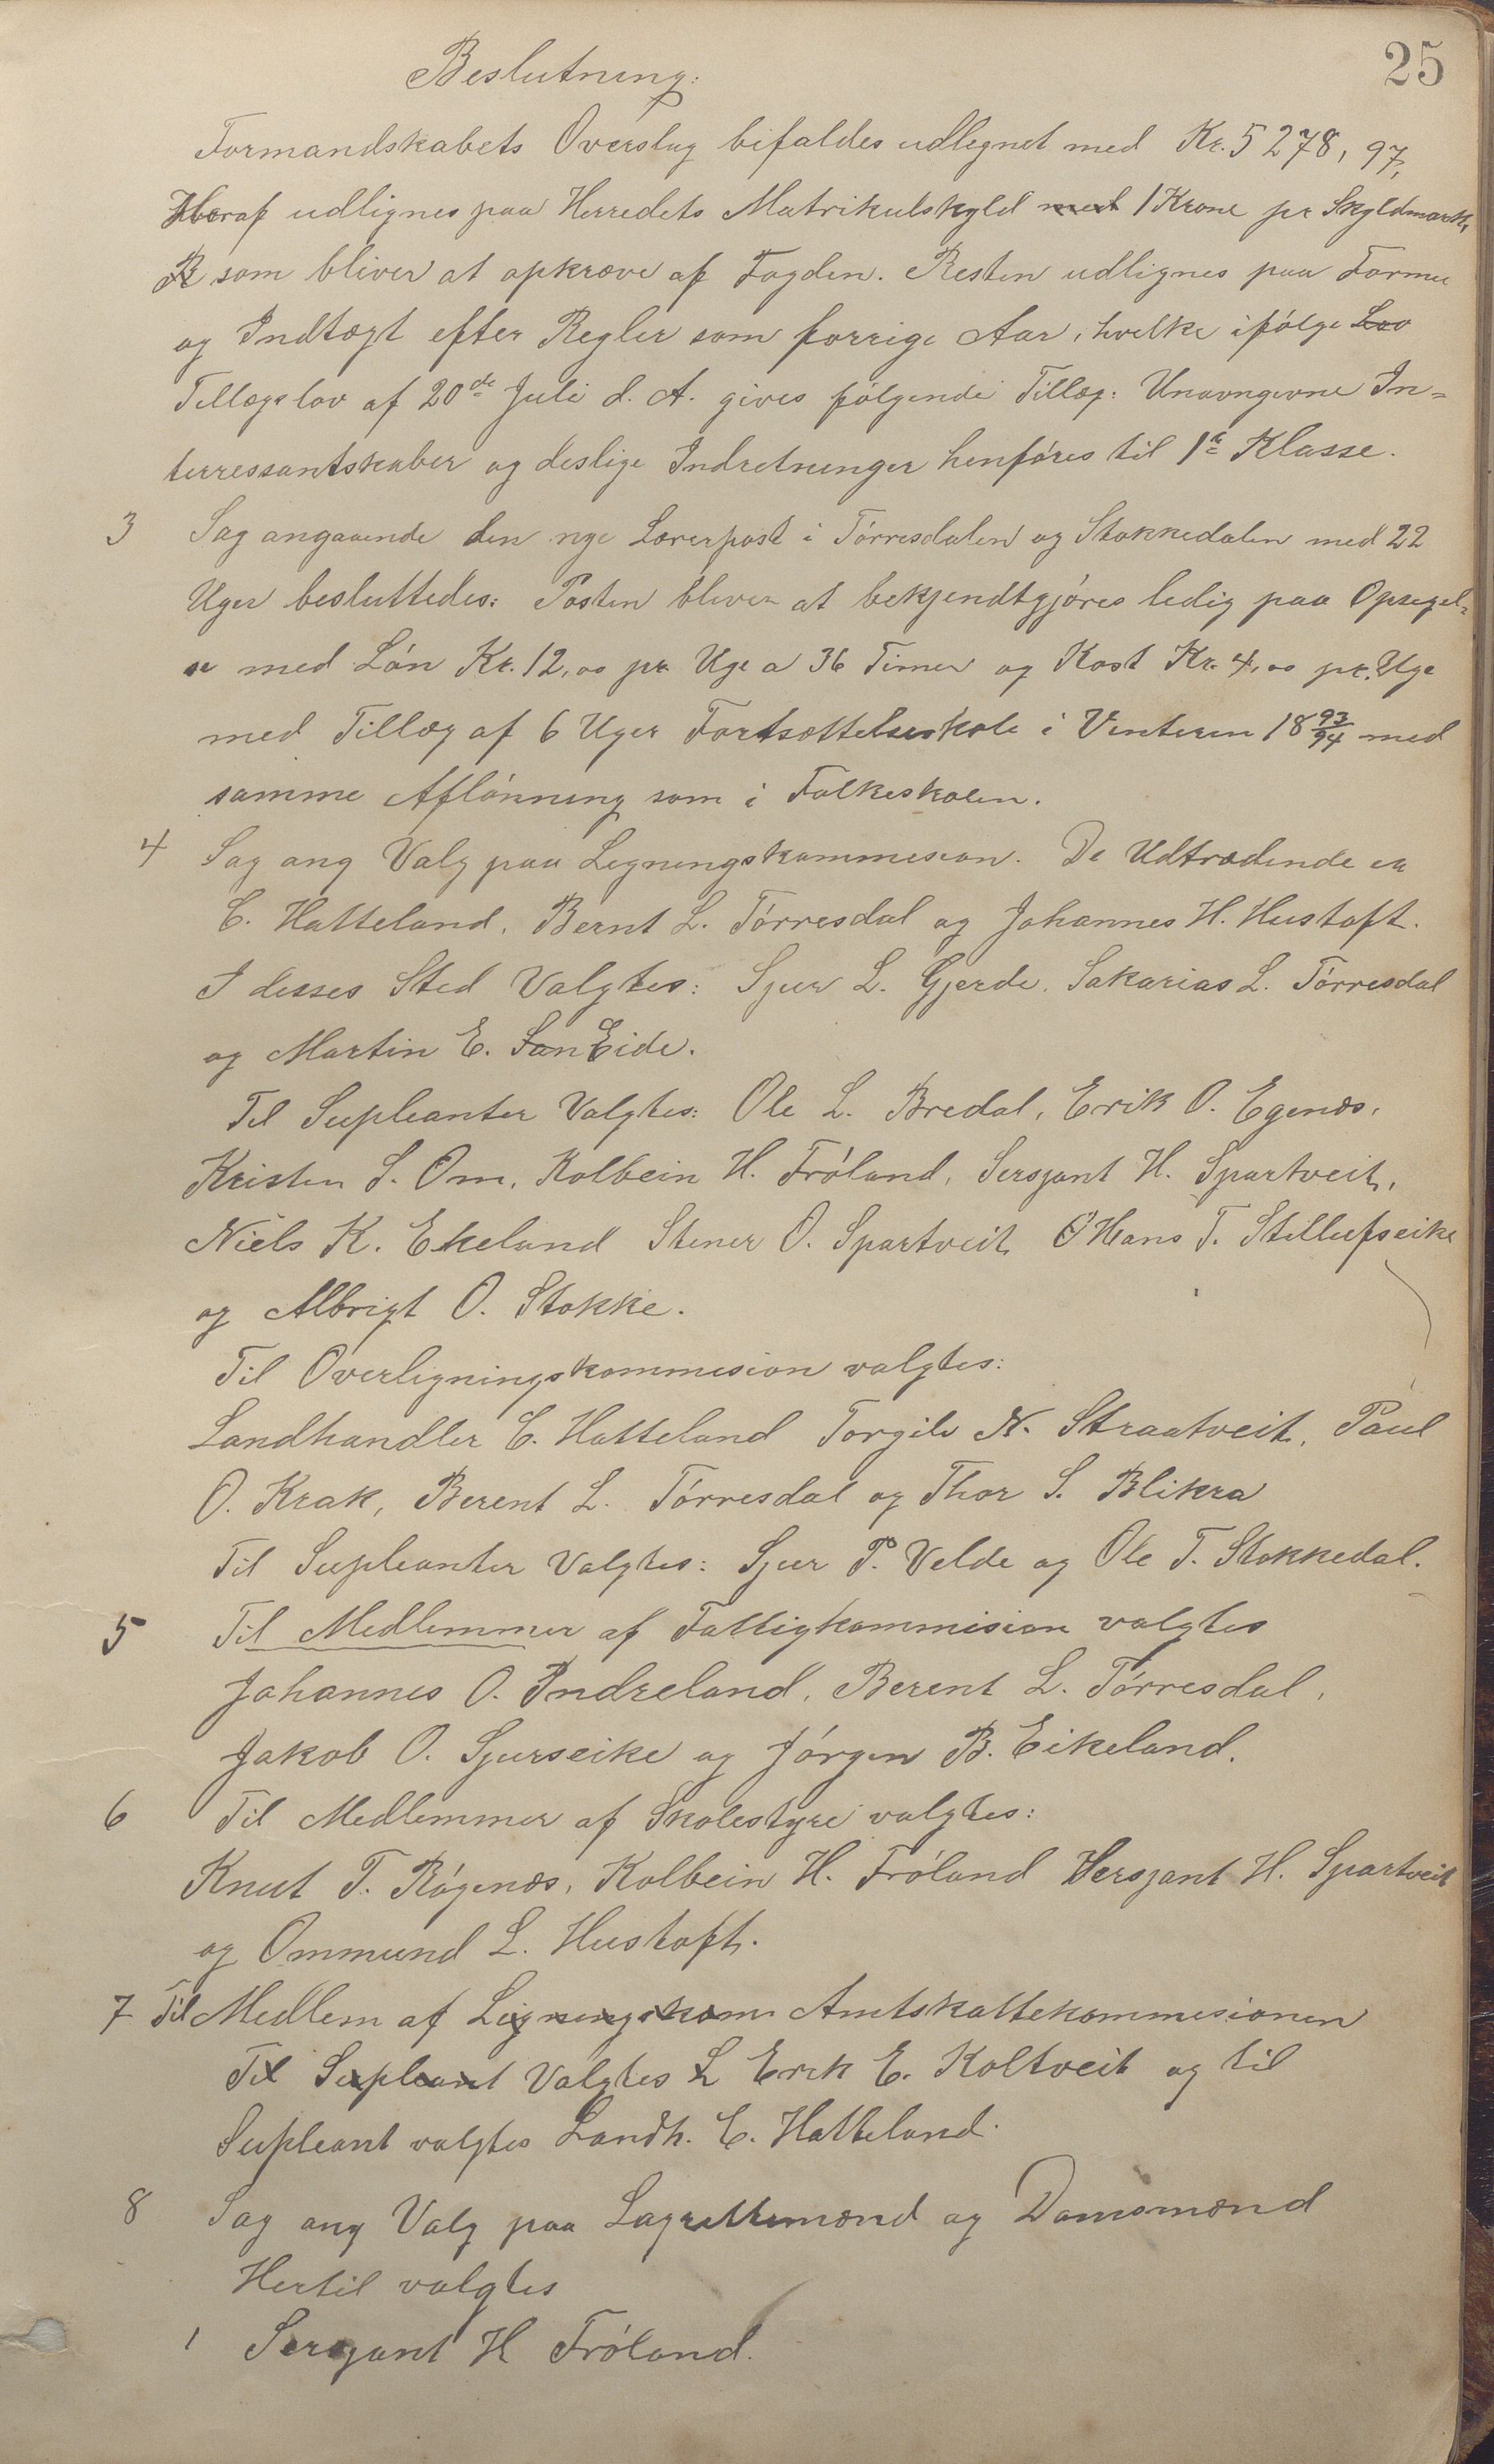 25
Beslutning:
Formandskabets Overslag bifaldes udlignet med Kr. 5278,97,
Heraf udlignes paa Herredets Matrikulskyld med 1 Krone pr Skyldmark,
R som bliver at opkræve af Fogden. Resten udlignes paa Formue
og Indtægt efter Regler som forrige Aar, hvilke ifølge Lov
Tillægslov af 20de Juli d. A. gives følgende Tillæg: Unavngivne In=
terressantskaber og deslige Indretninger henføres til 1e Klasse.
3 Sag angaaende den nye Lærerpost i Tørresdalen og Stokkedalen med 22
Uger besluttedes: Posten bliver at bekjendtgjøres ledig paa Opsigel=
se med Løn Kr. 12,00 pr Uge a 36 Timer og Kost Kr. 4,00 pr. Uge
med Tillæg af 6 Uger Fortsættelseskole i Vinteren 18 93/94 med
samme Aflønning som i Folkeskolen.
4 Sag ang Valg paa Ligningskommision. De Udtrædende er
C. Hatteland, Bernt L. Tørresdal og Johannes H. Hustoft.
I desses Sted Valgtes: Sjur L. Gjerde, Sakarias L. Tørresdal
og Martin E. San Eide.
Til Supleanter Valgtes: Ole L. Bredal, Erik O. Egenæs,
Kristen S. Om, Kolbein H. Frøland, Sersjant H. Spartveit,
Niels K. Ekeland Stener O. Spartveit O Hans T. Stellufseike
og Albrigt O. Stokke.
Til Overligningskommision valgtes:
Landhandler C. Hatteland Torgils N. Straatveit, Paul
O. Krak, Berent L. Tørresdal og Thor S. Blikra
Til Supleanter Valgtes: Sjur P. Velde og Ole T. Stokkedal.
5 Til Medlemmer af Fattigkommision valgtes
Johannes O. Indreland, Berent L. Tørresdal,
Jakob O. Sjurseike og Jørgen B. Eikeland.
6 Til Medlemmer af Skolestyre valgtes:
Knut T. Røgenæs, Kolbein H. Frøland Sersjant H. Spartveit
og Ommund L. Hustoft.
7 Til Medlem af Ligningskom Amtskattekommisionen
Til Supleant Valgtes L Erik E. Koltveit og til
Supleant valgtes Landh. C. Hatteland.
8 Sag ang Valg paa Lagrettemænd og Domsmænd
Hertil valgtes
1 Sersjant H Frøland.